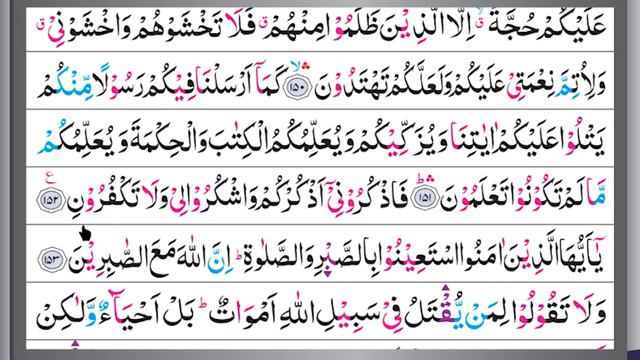 عَلَيۡكُمۡ حُجَّةٌ ۙ اِلَّا الَّذِيۡنَ ظَلَمُوۡا مِنۡهُمۡ ۙ فَلَا تَخۡشَوۡهُمۡ وَاخۡشَوۡنِىۡ ۙ
وَلِاُتِمَّ نِعۡمَتِىۡ عَلَيۡكُمۡ وَلَعَلَّكُمۡ تَهۡتَدُوۡنَ ۙ‏ ﴿۱۵۰﴾ كَمَآ اَرۡسَلۡنَا فِيۡكُمۡ رَسُوۡلًا مِّنۡكُمۡ
يَتۡلُوۡا عَلَيۡكُمۡ اٰيٰتِنَا وَيُزَكِّيۡكُمۡ وَيُعَلِّمُكُمُ الۡكِتٰبَ وَالۡحِكۡمَةَ وَيُعَلِّمُكُمۡ
مَّا لَمۡ تَكُوۡنُوۡا تَعۡلَمُوۡنَ ؕ‏ ﴿۱۵۱﴾ فَاذۡكُرُوۡنِىۡٓ اَذۡكُرۡكُمۡ وَاشۡکُرُوۡا لِىۡ وَلَا تَكۡفُرُوۡنِ ﴿۱۵۲﴾ ع
يٰٓاَيُّهَا الَّذِيۡنَ اٰمَنُوا اسۡتَعِيۡنُوۡا بِالصَّبۡرِ وَالصَّلٰوةِ ؕ اِنَّ اللّٰهَ مَعَ الصّٰبِرِيۡنَ ﴿۱۵۳﴾
وَلَا تَقُوۡلُوۡا لِمَنۡ يُّقۡتَلُ فِىۡ سَبِيۡلِ اللّٰهِ اَمۡوَاتٌ ؕ بَلۡ اَحۡيَآءٌ وَّلٰـكِنۡ